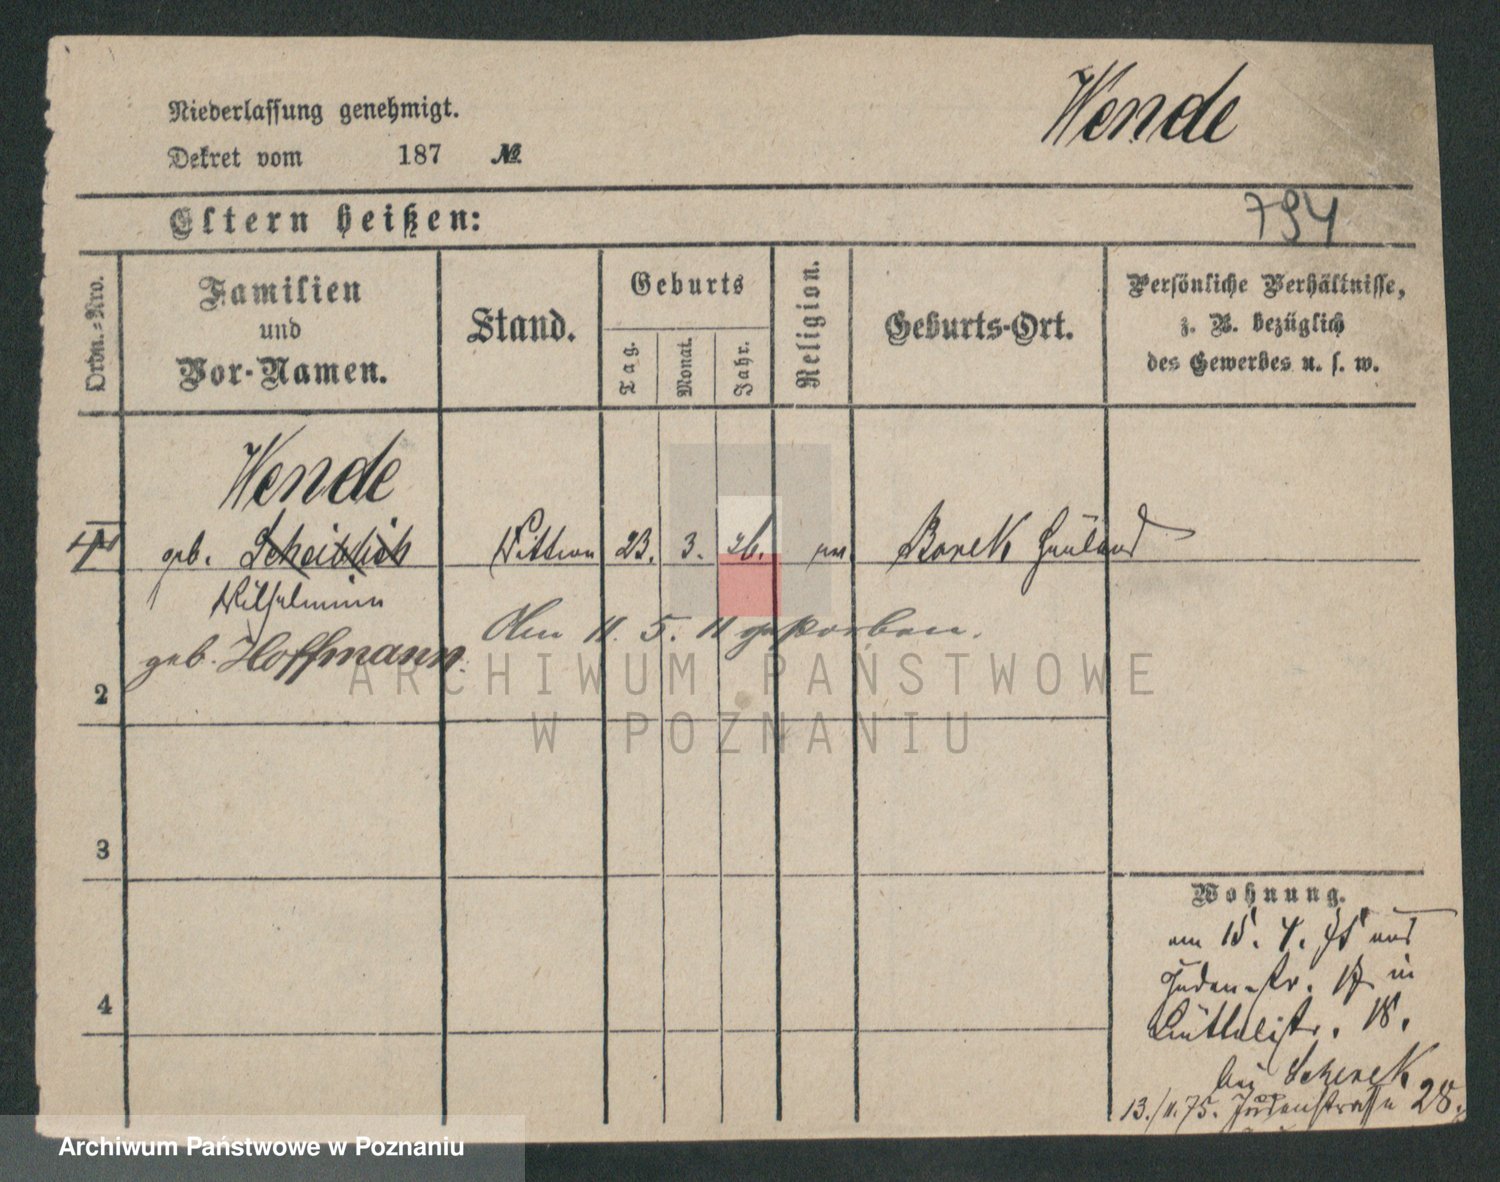 Wende
Niederlassung genehmigt.
Dekret vom 187 №
Eltern heißen:
794
Ordn.=Nro.
Familien
und
Vor-Namen.
Stand.
Geburts
Tag.
Monat.
Jahr.
Religion.
Geburts-Ort.
Persönliche Verhältnisse,
z. B. bezüglich
des Gewerbes u. s. w.
Wende
geb. Scheiblich Wittwe 23. 3. 26. ev. Borek Hauland
Wilhelmine
geb. Hoffmann
Am 11. 5. 11 gestorben.
2
3
4
Wohnung.
am 15. 4. 75 aus
Judenstr. 17 in
Büttelstr. 18.
bei Scherek
13./11.75. Judenstrasse 28.
ARCHIWUM PAŃSTWOWE
W POZNANIU
Archiwum Państwowe w Poznaniu